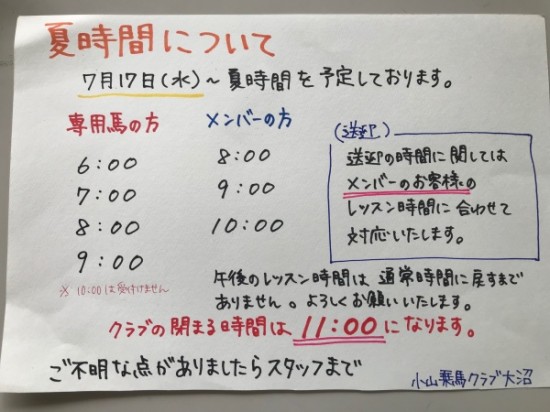 夏時間について
7月17日(水)～夏時間を予定しております。
専用馬の方
6:00
7:00
8:00
9:00
※10:00は受付けません
メンバーの方
8:00
9:00
10:00
(送迎)
送迎の時間に関しては
メンバーのお客様の
レッスン時間に合わせて
対応いたします。
午後のレッスン時間は通常時間に戻すまで
ありません。よろしくお願いいたします。
クラブの閉まる時間は11:00になります。
ご不明な点がありましたらスタッフまで
小山乗馬クラブ大沼